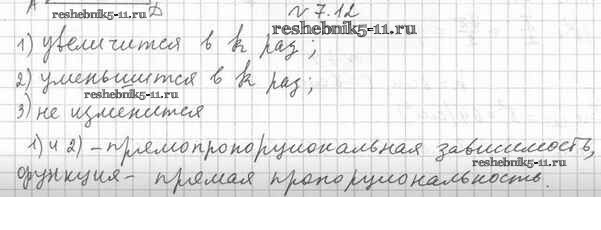 A D
reshebnik5-11.ru
N 7.12
reshebnik5-11.ru
1) увеличится в k раз;
2) уменьшится в k раз;
reshebnik5-11.ru
3) не изменится
1) и 2) – прямопропорциональная зависимость,
reshebnik5-11.ru
функция – прямая пропорциональность.